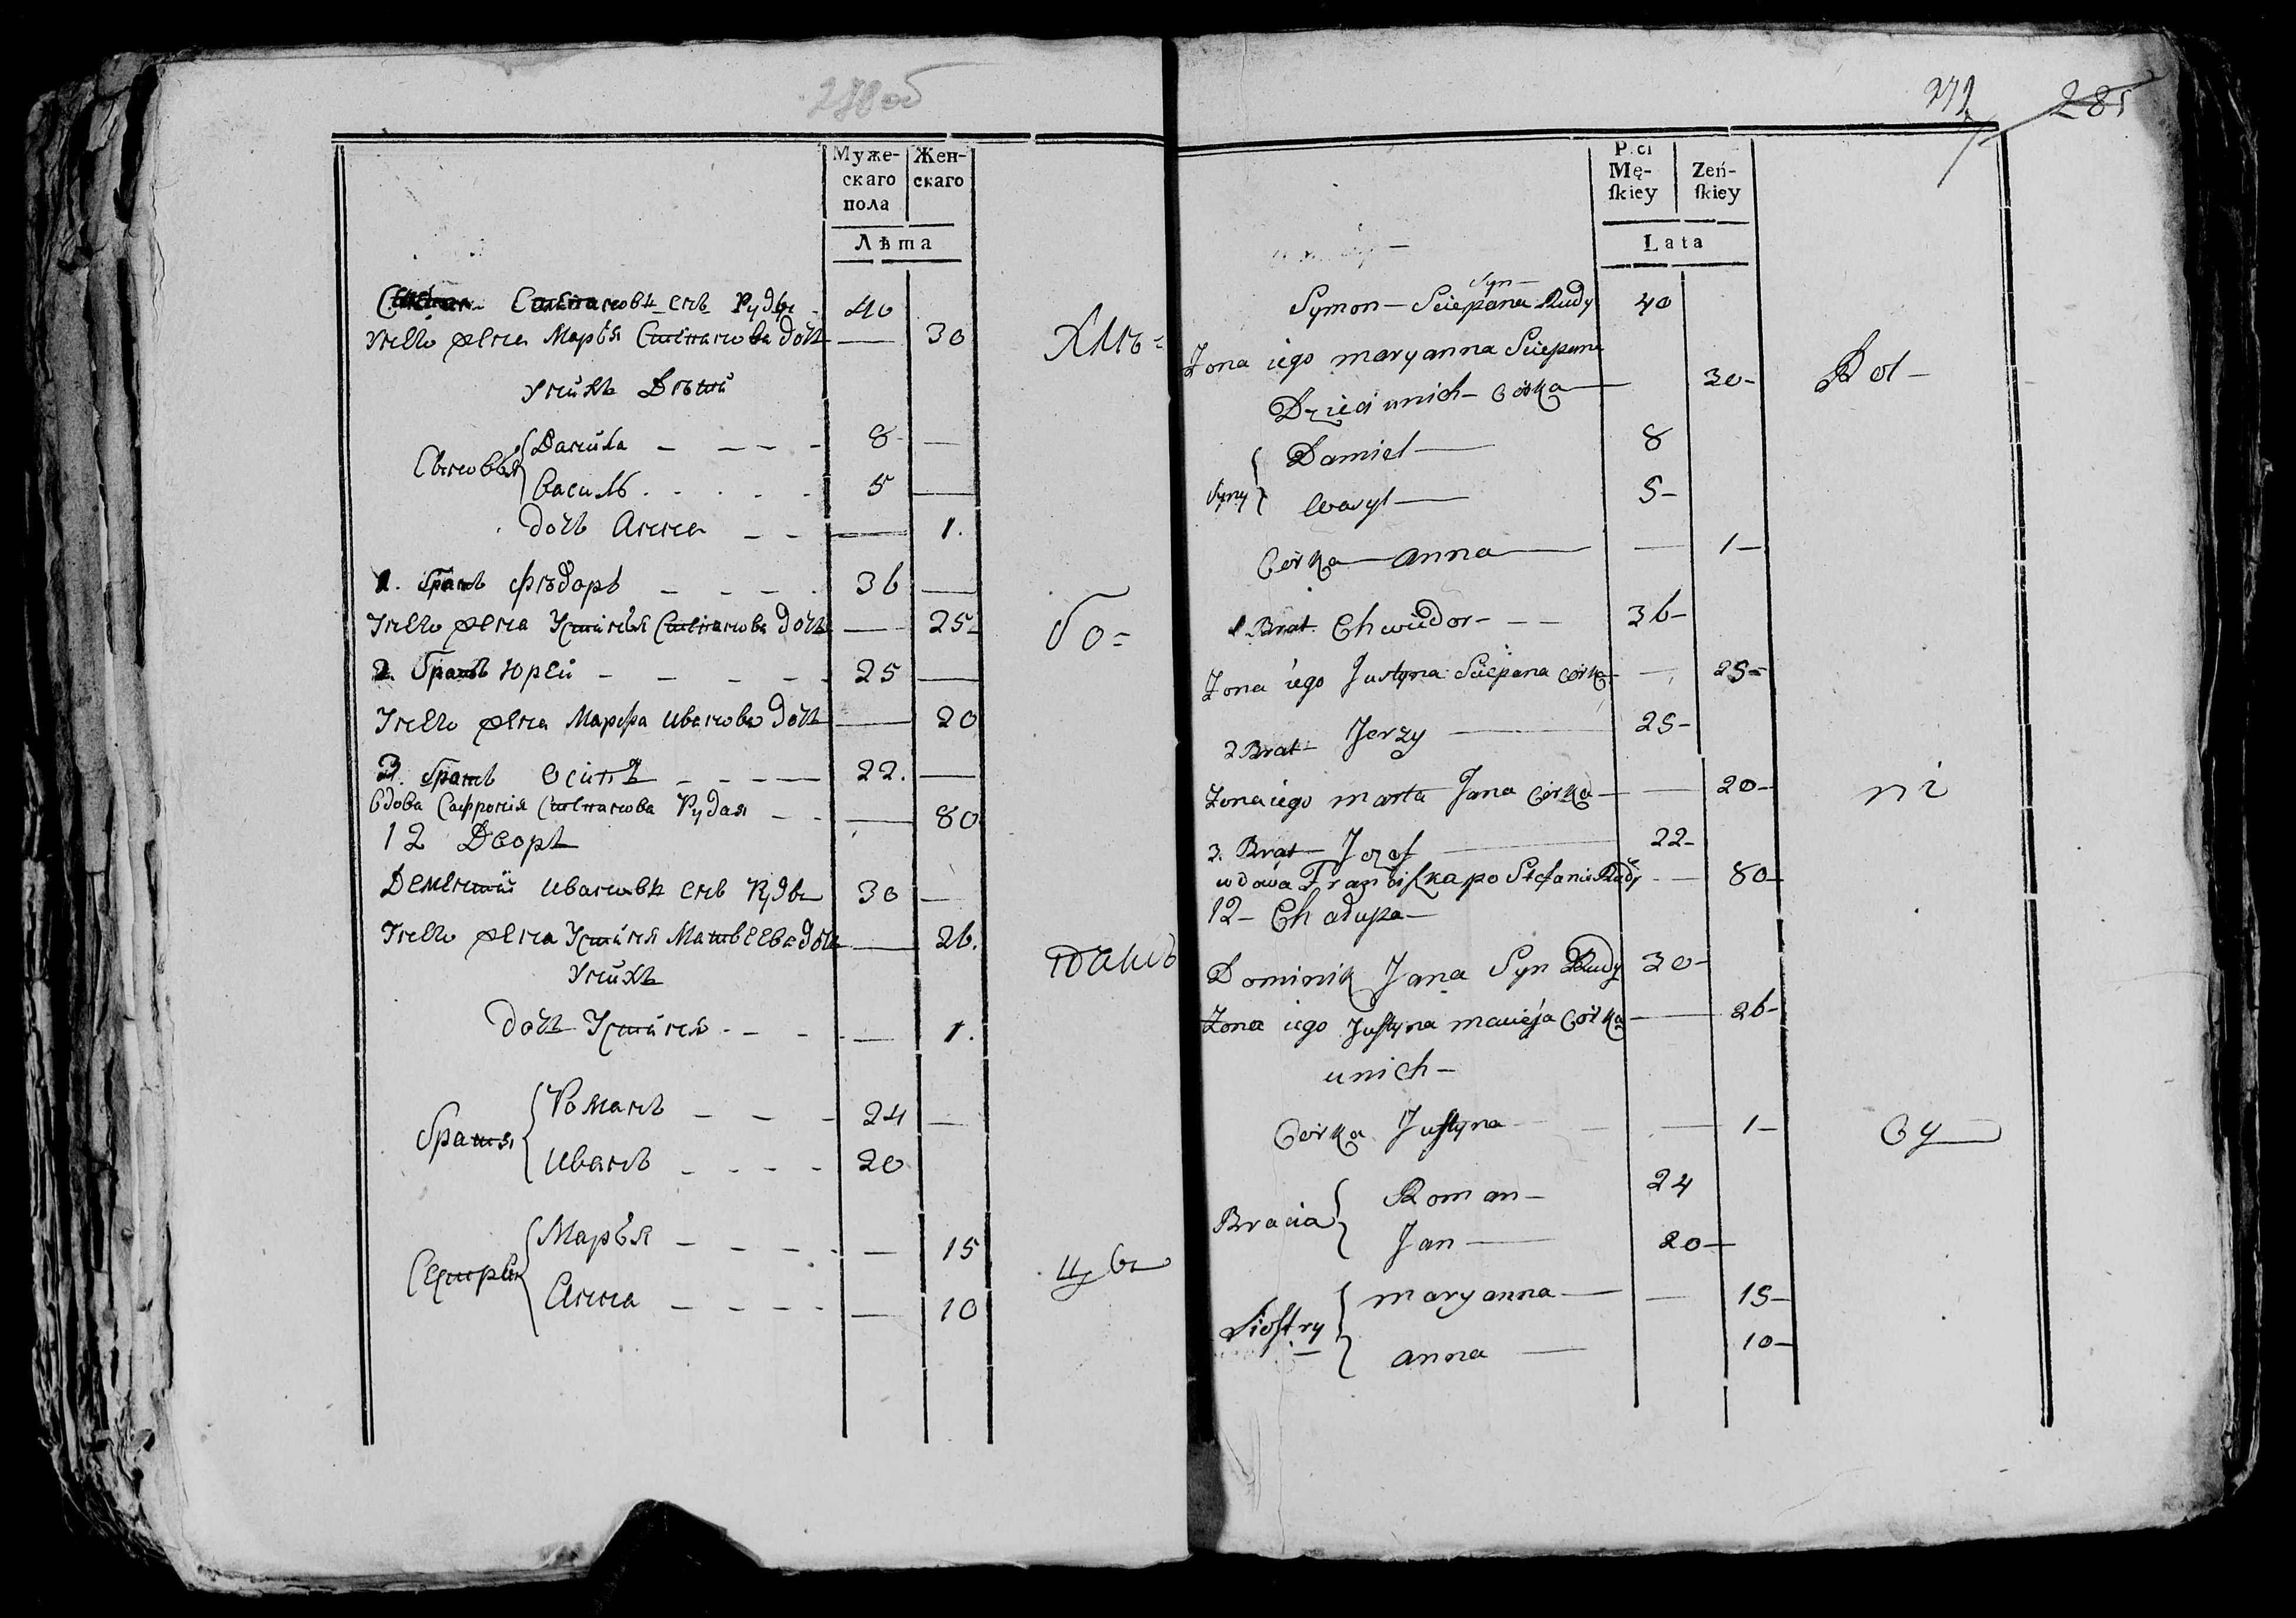 278 об
Муже-
скаго
пола
Жен-
скаго
Лѣта
Степановъ снъ Руды 40
У него жена Марья Степанова дочь — 30
У нихъ Дѣти
Сыновья { Данила — 8 —
Василь 5 —
дочь Анна — 1.
1. братъ Фѣдоръ 36 —
У него жена Устинья Степанова дочь — 25
2. братъ Юрей 25 —
У него жена Марфа Иванова дочь — 20
3. братъ Осипъ 22. —
Вдова Сафронія Степанова Рудая — 80
12 Дворъ
Дементій Ивановъ снъ Руды 30 —
У него жена Устиня Матвеева дочь — 26.
У нихъ
дочь Устиня — 1.
братья { Романъ 24 —
Иванъ 20
Сестры { Марья — 15
Анна — 10
Хлѣ=
бо=
пашъ
цы
272 285
Mę-
ſkiey
Zeń-
ſkiey
Lata
Syn
Symon — Sciepana Rudy 40
Zona iego maryanna Sciepana
Dzieci unich — Corka — 30 —
Syny { Daniel — 8
Wasyl — 5 —
Corka — anna — 1 —
1 Brat Chwiedor — 36 —
Zona iego Justyna Sciepana corka — 25 —
2 Brat Jerzy — 25 —
Zona iego marta Jana Corka — 20 —
3. Brat — Jozef — 22 —
wdowa Franciſzka po Stefanie Rudy — 80 —
12 — Chałupa —
Dominik Jana Syn Rudy 30 —
Zona iego Juſtyna macieja Corka — 26 —
unich —
Corka Juſtyna — 1 —
Bracia { Roman — 24
Jan — 20 —
Sioſtry { maryanna — 15 —
anna — 10 —
Rol —
ni
cy